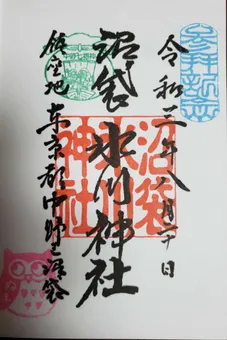 参拝記念
令和三年八月二十日
沼袋
氷川神社
沼袋氷川神社
鎮座地 東京都中野区沼袋